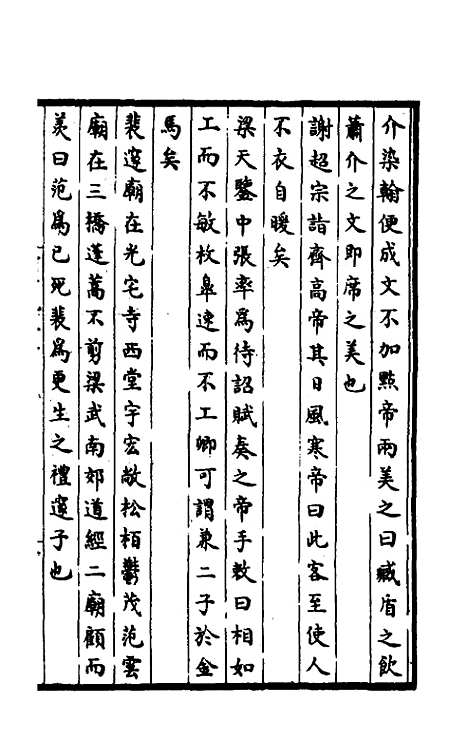 介染翰便成文不加點帝兩美之曰臧盾之飲
蕭介之文即席之美也
謝超宗詣齊高帝其日風寒帝曰此客至使人
不衣自暖矣
梁天鑒中張率為待詔賦奏之帝手敕曰相如
工而不敏枚皐速而不工卿可謂兼二子於金
馬矣
裴邃廟在光宅寺西堂宇宏敞松栢鬱茂范雲
廟在三橋蓬蒿不剪梁武南郊道經二廟顧而
羙曰范為已死裴為更生之禮邃子也